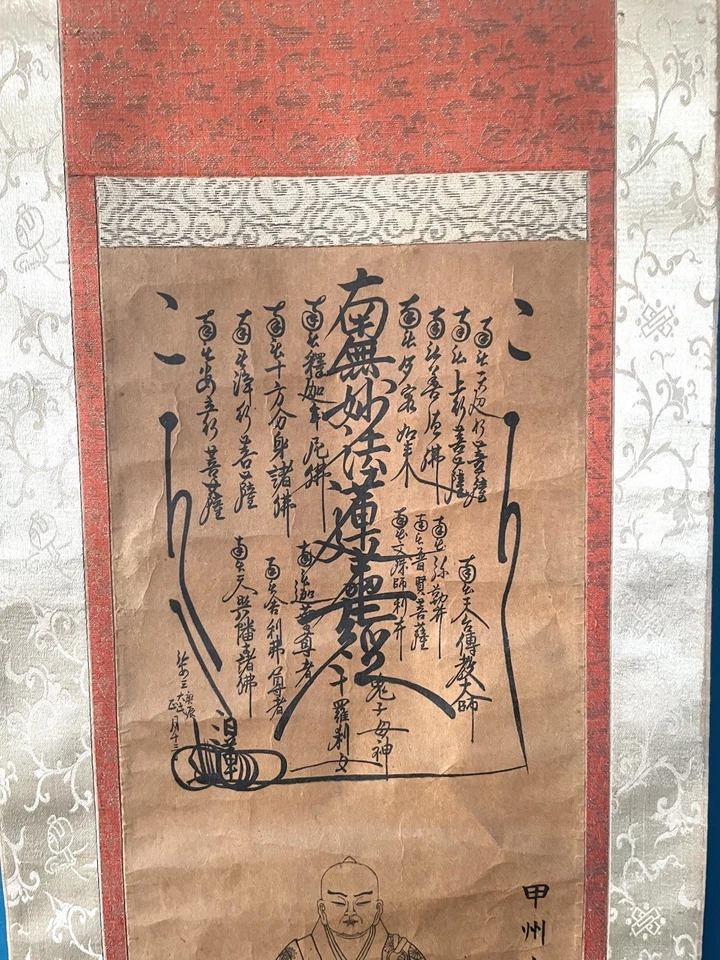 南無无辺行菩薩
南無上行菩薩
南無善徳佛
南無多寳如来
南無妙法蓮華經
南無釋迦牟尼佛
南無十方分身諸佛
南無浄行菩薩
南無安立行菩薩
南無天台傳教大師
南無弥勒井
南無普賢菩薩
南無文殊師利井
鬼子母神
十羅刹女
南無迦葉尊者
南無舎利弗尊者
日蓮
庚辰
正月十三
甲州